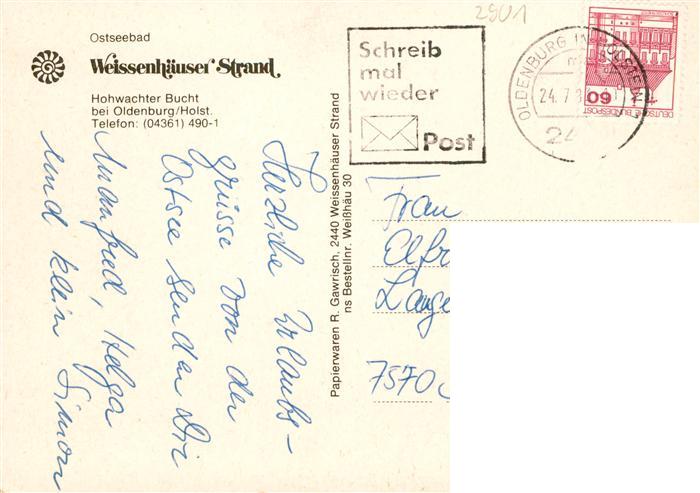 2901
Ostseebad
Weissenhäuser Strand
Hohwachter Bucht
bei Oldenburg/Holst.
Telefon: (04361) 490-1
Schreib
mal
wieder
Post
OLDENBURG IN HOLSTEIN
24.7.8
24
60
DEUTSCHE BUNDESPOST
Herzliche Urlaubs-
grüsse von der
Ostsee senden Dir
Manfred, Helga
und klein Simon
Papierwaren R. Gawrisch, 2440 Weissenhäuser Strand
ns Bestellnr. Weißhäu 30
Frau
Elfr
Lange
7570